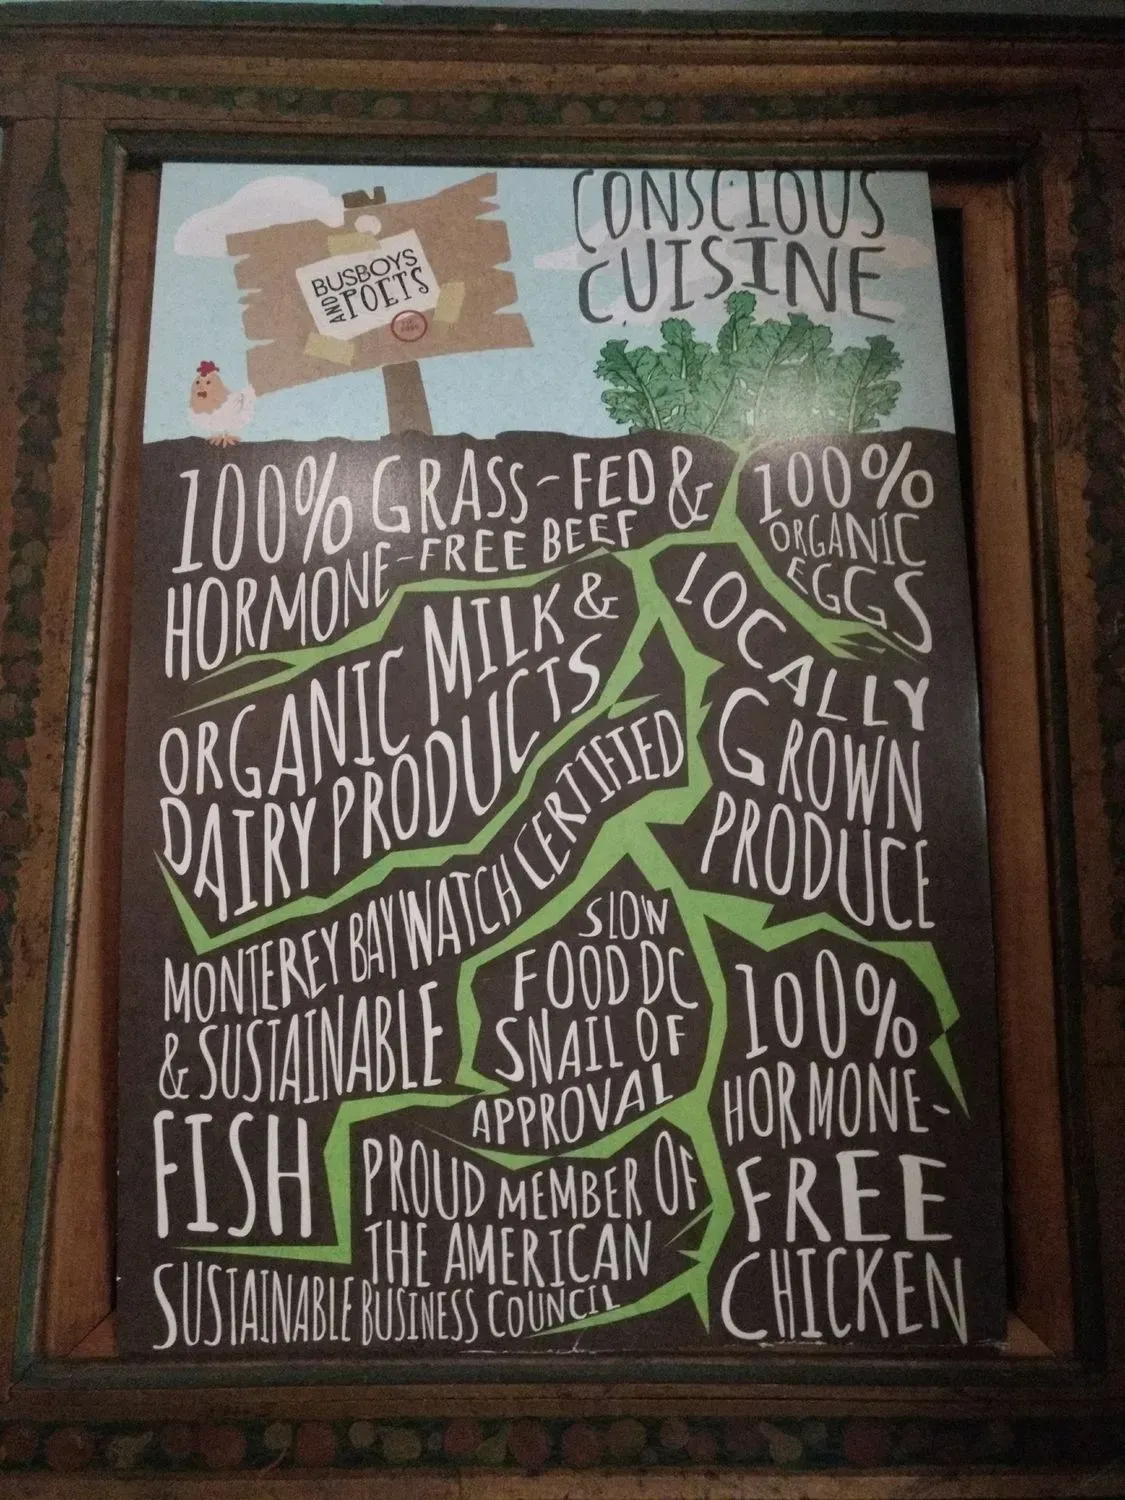 BUSBOYS
AND POETS
CONSCIOUS
CUISINE
100% GRASS-FED &
HORMONE-FREE BEEF
100%
ORGANIC
EGGS
ORGANIC MILK &
DAIRY PRODUCTS
LOCALLY
GROWN
PRODUCE
MONTEREY BAY WATCH CERTIFIED
& SUSTAINABLE
FISH
SLOW
FOOD DC
SNAIL OF
APPROVAL
100%
HORMONE-
FREE
CHICKEN
PROUD MEMBER OF
THE AMERICAN
SUSTAINABLE BUSINESS COUNCIL